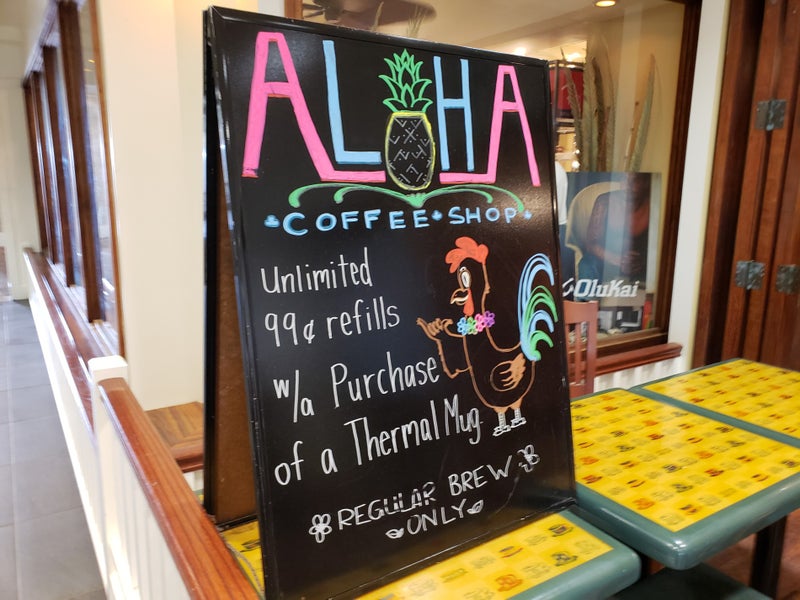 ALOHA
COFFEE SHOP
Unlimited
99¢ refills
w/a Purchase
of a Thermal Mug
REGULAR BREW
ONLY
OluKai